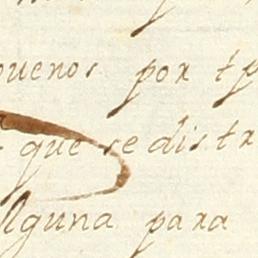 buenos por tp
que se distr
Alguna para